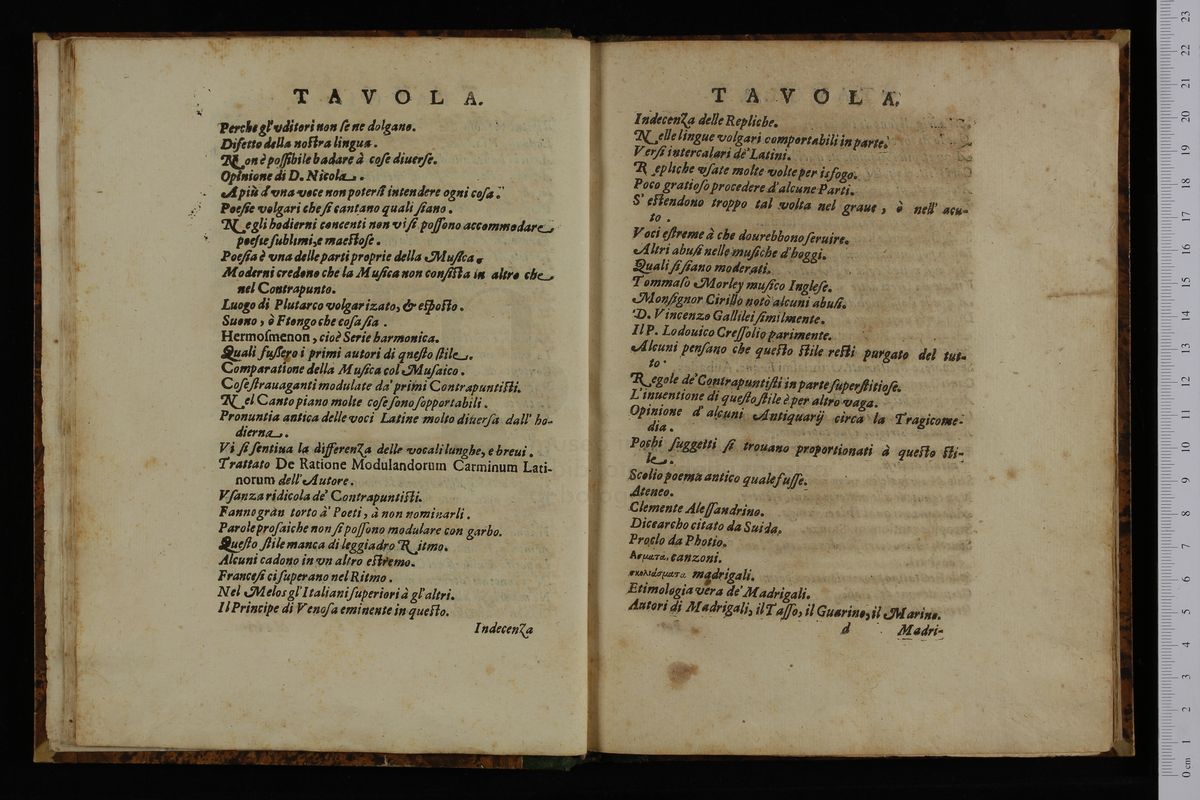 TAVOLA.
Perche gl'vditori non ſe ne dolgano.
Difetto della noſtra lingua.
Non è poſſibile badare à coſe diuerſe.
Opinione di D. Nicola.
A più d'vna voce non poterſi intendere ogni coſa.
Poeſie volgari che ſi cantano quali ſiano.
Ne gli hodierni concenti non vi ſi poſſono accommodare
poeſie ſublimi, e maeſtoſe.
Poeſia è vna delle parti proprie della Muſica.
Moderni credono che la Muſica non conſiſta in altro che
nel Contrapunto.
Luogo di Plutarco volgarizato, & eſpoſto.
Suono, ò Ftongo che coſa ſia.
Hermoſmenon, cioè Serie harmonica.
Quali fuſſero i primi autori di queſto ſtile.
Comparatione della Muſica col Muſaico.
Coſe ſtrauaganti modulate da' primi Contrapuntiſti.
Nel Canto piano molte coſe ſono ſopportabili.
Pronuntia antica delle voci Latine molto diuerſa dall' ho-
dierna.
Vi ſi ſentiua la differenza delle vocali lunghe, e breui.
Trattato De Ratione Modulandorum Carminum Lati-
norum dell'Autore.
Vſanza ridicola de' Contrapuntiſti.
Fanno gran torto à' Poeti, à non nominarli.
Parole proſaiche non ſi poſſono modulare con garbo.
Queſto ſtile manca di leggiadro Ritmo.
Alcuni cadono in vn altro eſtremo.
Franceſi ci ſuperano nel Ritmo.
Nel Melos gl'Italiani ſuperiori à gl'altri.
Il Principe di Venoſa eminente in queſto.
Indecenza
TAVOLA.
Indecenza delle Repliche.
Nelle lingue volgari comportabili in parte.
Verſi intercalari de' Latini.
Repliche vſate molte volte per isfogo.
Poco gratioſo procedere d'alcune Parti.
S' eſtendono troppo tal volta nel graue, ò nell' acu-
to.
Voci eſtreme à che dourebbono ſeruire.
Altri abuſi nelle muſiche d'hoggi.
Quali ſi ſiano moderati.
Tommaſo Morley muſico Ingleſe.
Monſignor Cirillo notò alcuni abuſi.
D. Vincenzo Gallilei ſimilmente.
Il P. Lodouico Creſſolio parimente.
Alcuni penſano che queſto ſtile reſti purgato del tut-
to.
Regole de' Contrapuntiſti in parte ſuperſtitioſe.
L'inuentione di queſto ſtile è per altro vaga.
Opinione d' alcuni Antiquarij circa la Tragicome-
dia.
Pochi ſuggetti ſi trouano proportionati à queſto ſti-
le.
Scolio poema antico quale fuſſe.
Ateneo.
Clemente Aleſſandrino.
Dicearcho citato da Suida.
Proclo da Photio.
Ασματα. canzoni.
σκολιάσματα madrigali.
Etimologia vera de' Madrigali.
Autori di Madrigali, il Taſſo, il Guarino, il Marino.
d Madri-
0 cm 1 2 3 4 5 6 7 8 9 10 11 12 13 14 15 16 17 18 19 20 21 22 23